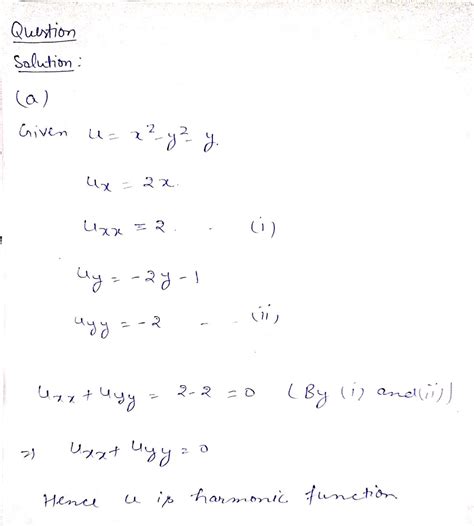 Question
Solution :
(a)
Given u = x² - y² - y.
ux = 2x.
uxx = 2 . . (i)
uy = -2y - 1
uyy = -2 - - (ii)
uxx + uyy = 2-2 = 0 (By (i) and (ii))
=) uxx + uyy = 0
Hence u is harmonic function